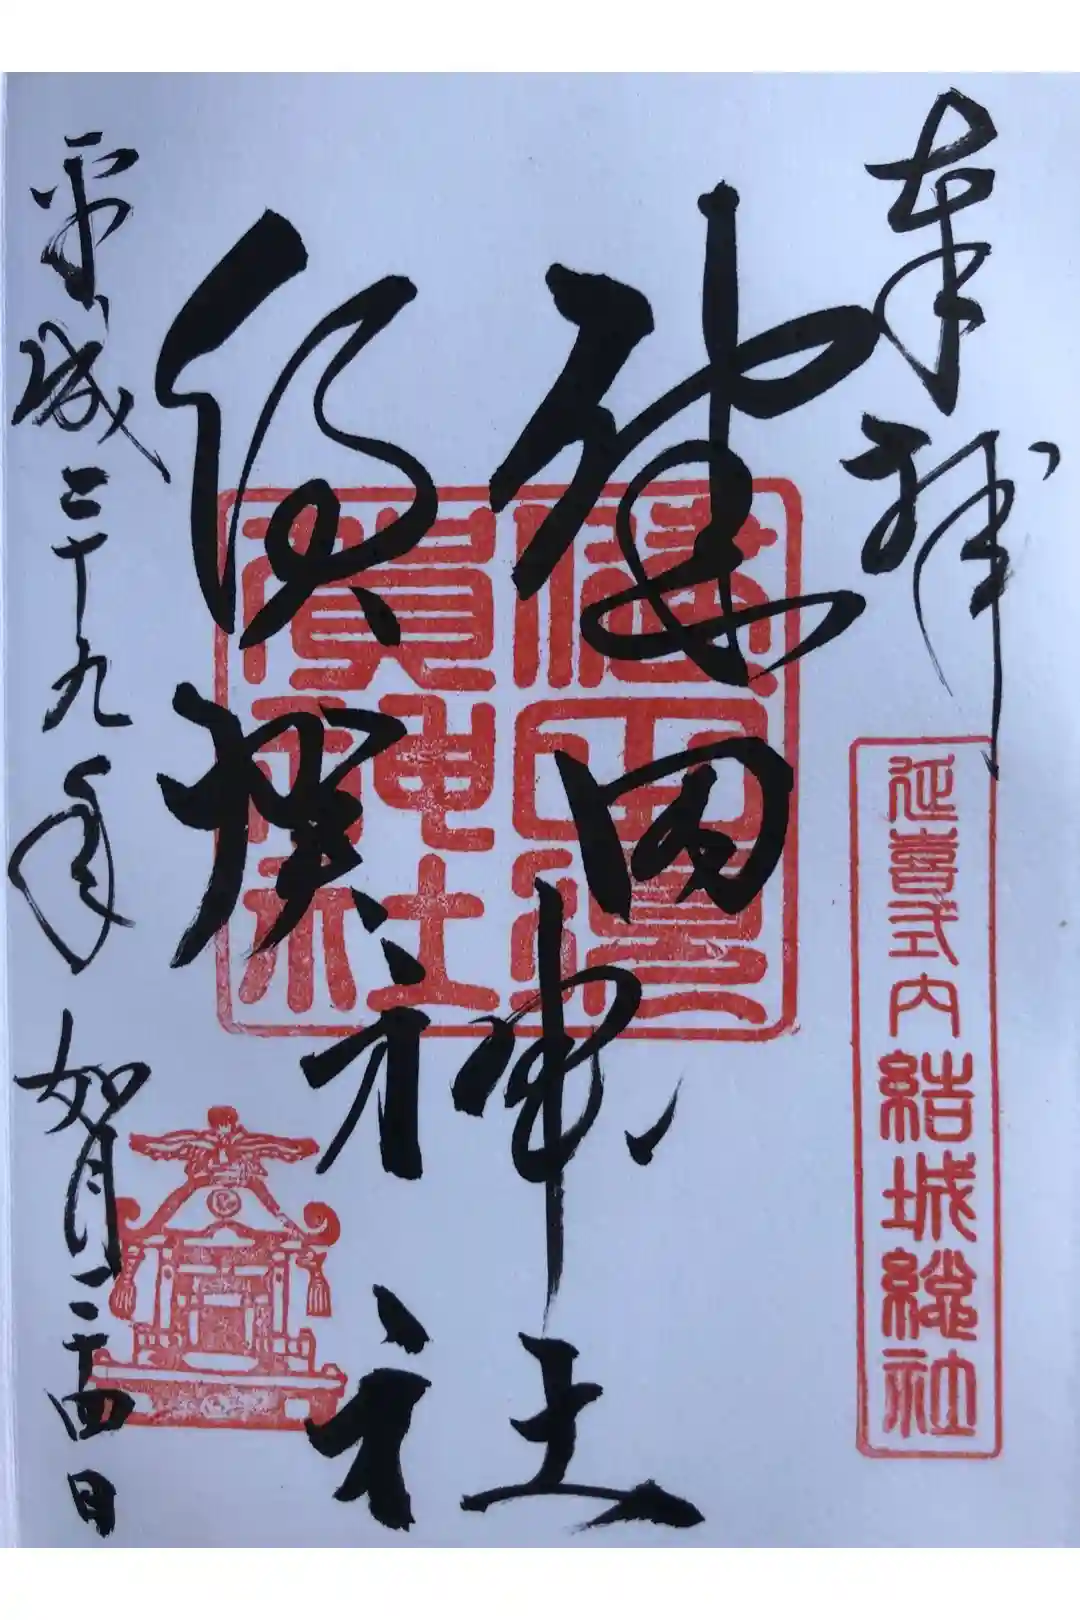 奉拝
延喜式内結城總社
健田
須賀
神社
健田須
賀神社
平成二十九年如月二十四日